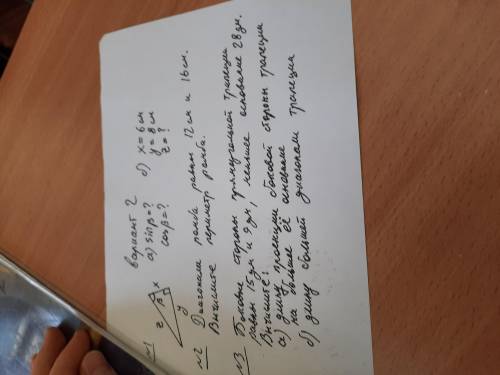 вариант 2
№1
а) sinβ = ? б) x = 6 см
cosβ = ? y = 8 см
z = ?
z x β y
№2 Диагонали ромба равны 12 см и 16 см.
Вычислите периметр ромба.
№3 Боковые стороны прямоугольной трапеции
равны 15 дм и 9 дм, меньшее основание 28 дм.
Вычислите:
а) длину проекции боковой стороны трапеции
на большее её основание
б) длину большей диагонали трапеции